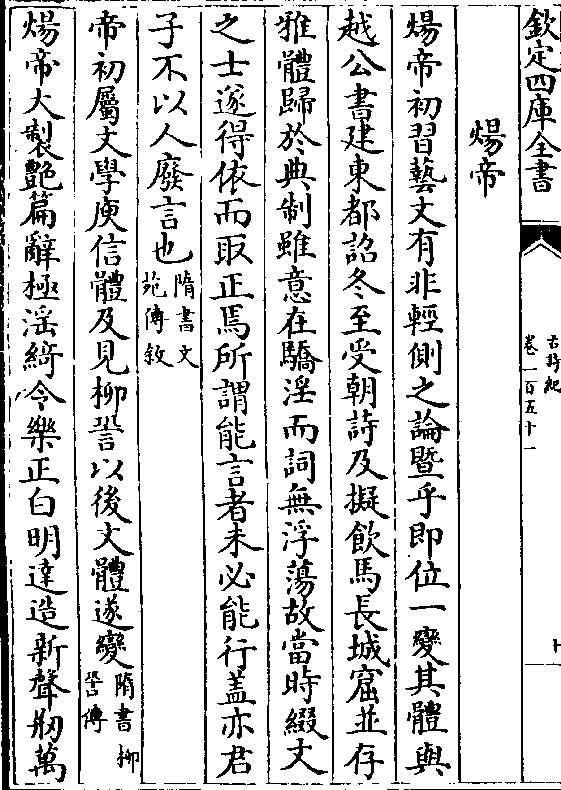 欽定四庫全書
古詩紀
卷一百五十一
十
煬帝
煬帝初習藝文有非輕側之論暨乎即位一變其體與
越公書建東都詔冬至受朝詩及擬飲馬長城窟並存
雅體歸於典制雖意在驕淫而詞無浮蕩故當時綴文
之士遂得依而取正焉所謂能言者未必能行盖亦君
子不以人廢言也隋書文苑傳敘
帝初屬文學庾信體及見柳䛒以後文體遂變隋書柳䛒傳
煬帝大製艷篇辭極淫綺令樂正白明達造新聲剏萬